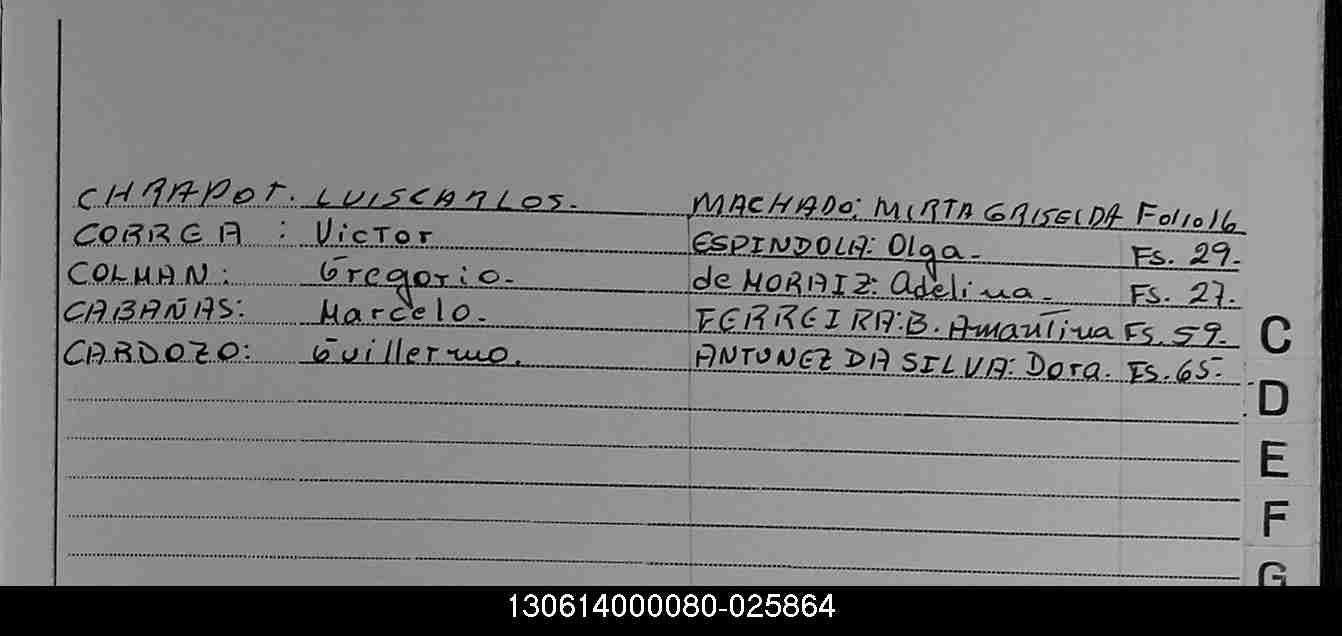 CHRAPOT. LUIS CARLOS. MACHADO: MIRTA GRISELDA Folio 16
CORREA : Victor ESPINDOLA: Olga. Fs. 29.
COLMAN: Gregorio. de MORAIZ: Adelina. Fs. 27.
CABAÑAS: Marcelo. FERREIRA: B. Amantina Fs. 59.
CARDOZO: Guillermo. ANTUNEZ DA SILVA: Dora. Fs. 65.
C
D
E
F
G
130614000080-025864